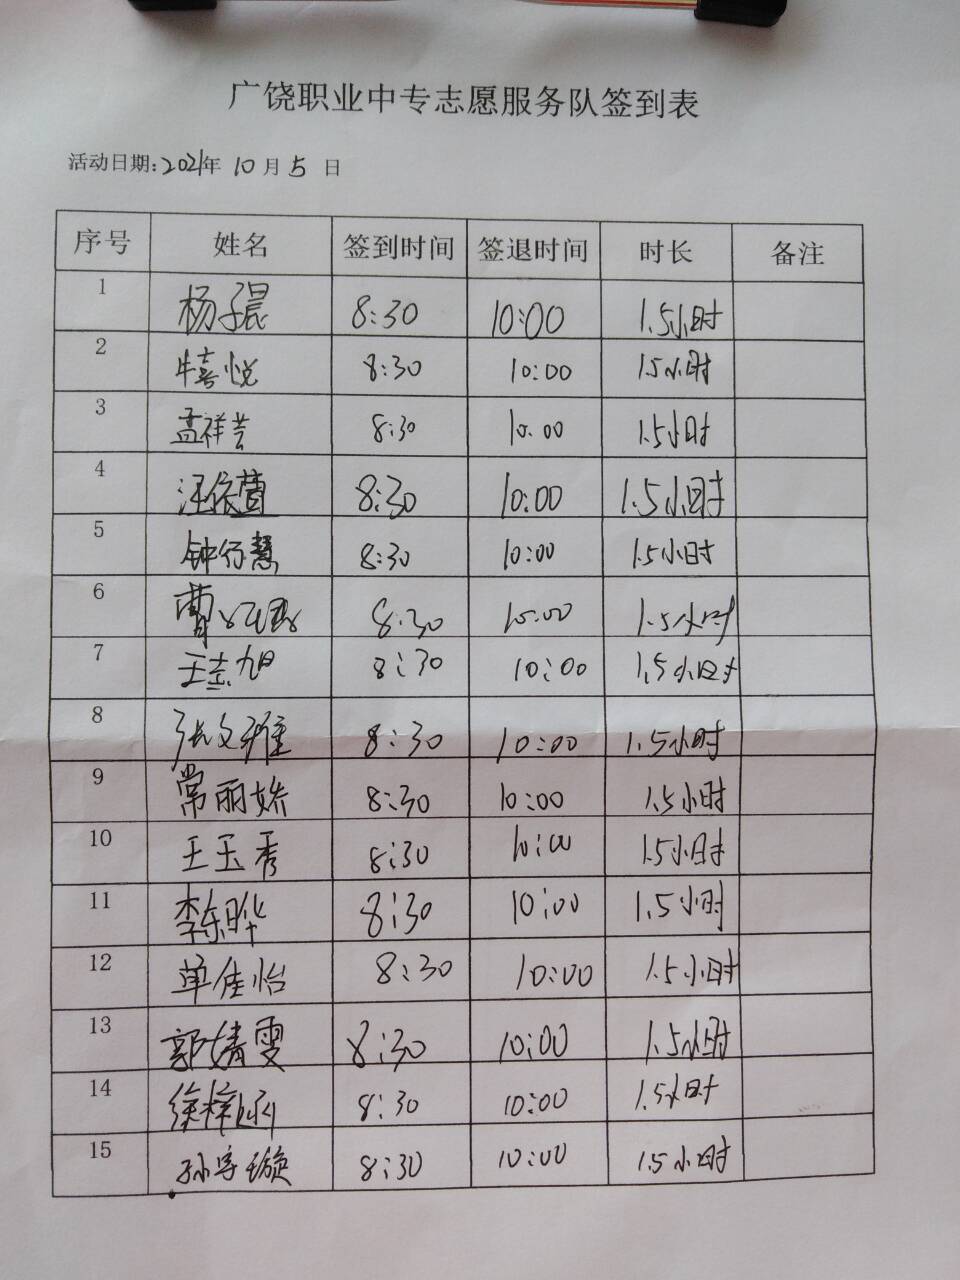 广饶职业中专志愿服务队签到表
活动日期:2021年 10月 5 日
序号 姓名 签到时间 签退时间 时长 备注
1 杨子晨 8:30 10:00 1.5小时
2 牛喜悦 8:30 10:00 1.5小时
3 孟祥芸 8:30 10:00 1.5小时
4 汪依萱 8:30 10:00 1.5小时
5 钟行慧 8:30 10:00 1.5小时
6 曹 8:30 10:00 1.5小时
7 王志旭 8:30 10:00 1.5小时
8 张文雅 8:30 10:00 1.5小时
9 常丽娇 8:30 10:00 1.5小时
10 王玉秀 8:30 10:00 1.5小时
11 李东晔 8:30 10:00 1.5小时
12 单佳怡 8:30 10:00 1.5小时
13 郭婧雯 8:30 10:00 1.5小时
14 徐梓涵 8:30 10:00 1.5小时
15 孙宇璇 8:30 10:00 1.5小时